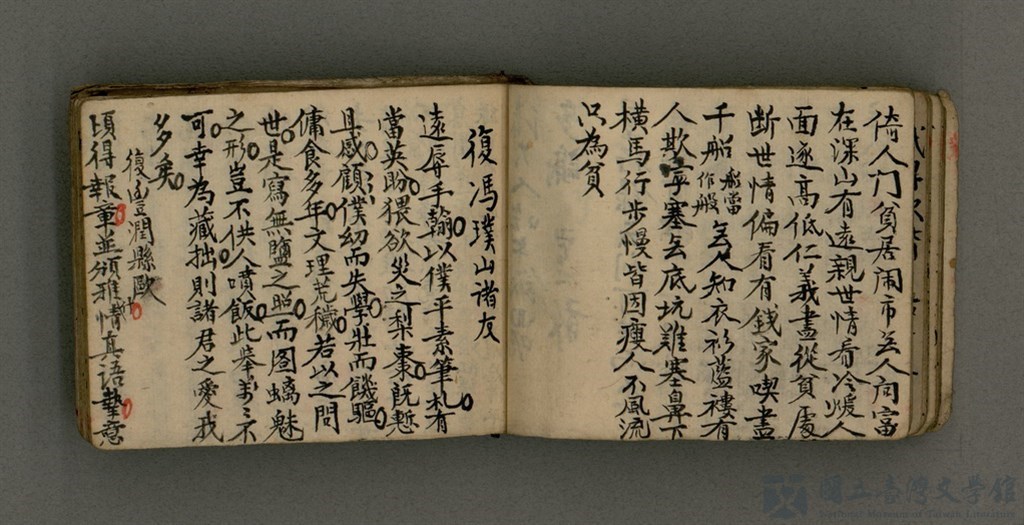 倚人门貧居鬧市无人问富
在深山有遠親世情看冷煖人
面逐高低仁義盡從貧處
断世情偏看有錢家喫盡
千船 船當作般 无人知衣衫藍褸有
人欺寧塞无底坑难塞鼻下
橫馬行步慢皆因瘦人不風流
只為貧
復馮璞山諸友
遠辱手翰以僕平素筆札有
當英盼猥欲災之梨棗既慙
且感顧僕幼而失學壯而饑驅
傭食多年文理荒穢若以之問
世是寫無鹽之照而图螭魅
之形豈不供人噴飯此舉萬万不
可幸為藏拙則諸君之愛我
多矣
復豐潤縣歐
頃得報章並頒雅情真語摯意
國立臺灣文學館
National Museum of Taiwan Literature